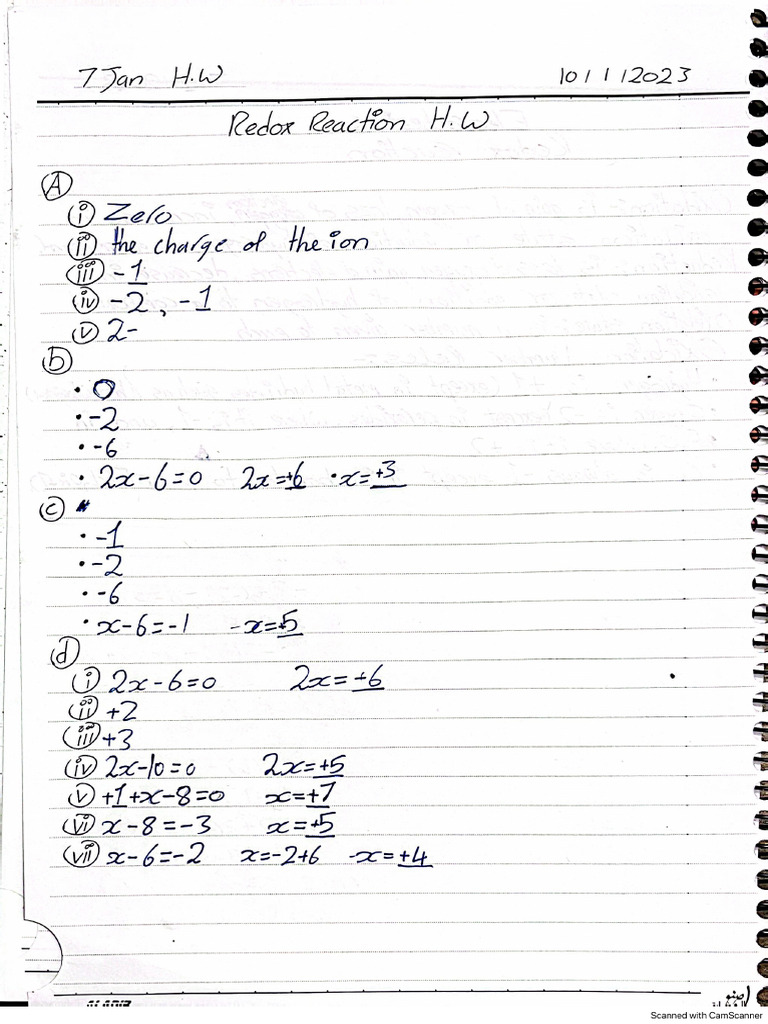 7 Jan H.W 10/1/2023
Redox Reaction H.W
A
i Zero
ii the charge of the ion
iii -1
iv -2, -1
v 2-
b
• 0
• -2
• -6
• 2x-6=0 2x=+6 • x=+3
c
• -1
• -2
• -6
• x-6=-1 -x=+5
d
i 2x-6=0 2x=+6
ii +2
iii +3
iv 2x-10=0 2x=+5
v +1+x-8=0 x=+7
vi x-8=-3 x=+5
vii x-6=-2 x=-2+6 -x=+4
Scanned with CamScanner